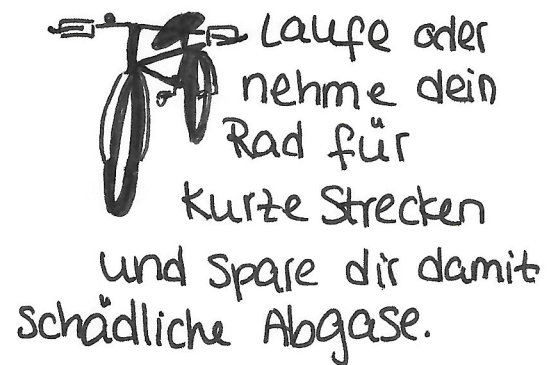 Laufe oder
nehme dein
Rad für
kurze Strecken
und spare dir damit
schädliche Abgase.